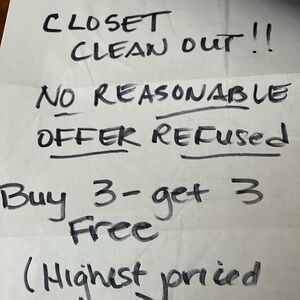 CLOSET
CLEAN OUT!!
NO REASONABLE
OFFER REFUSED
Buy 3-get 3
Free
(Highest priced